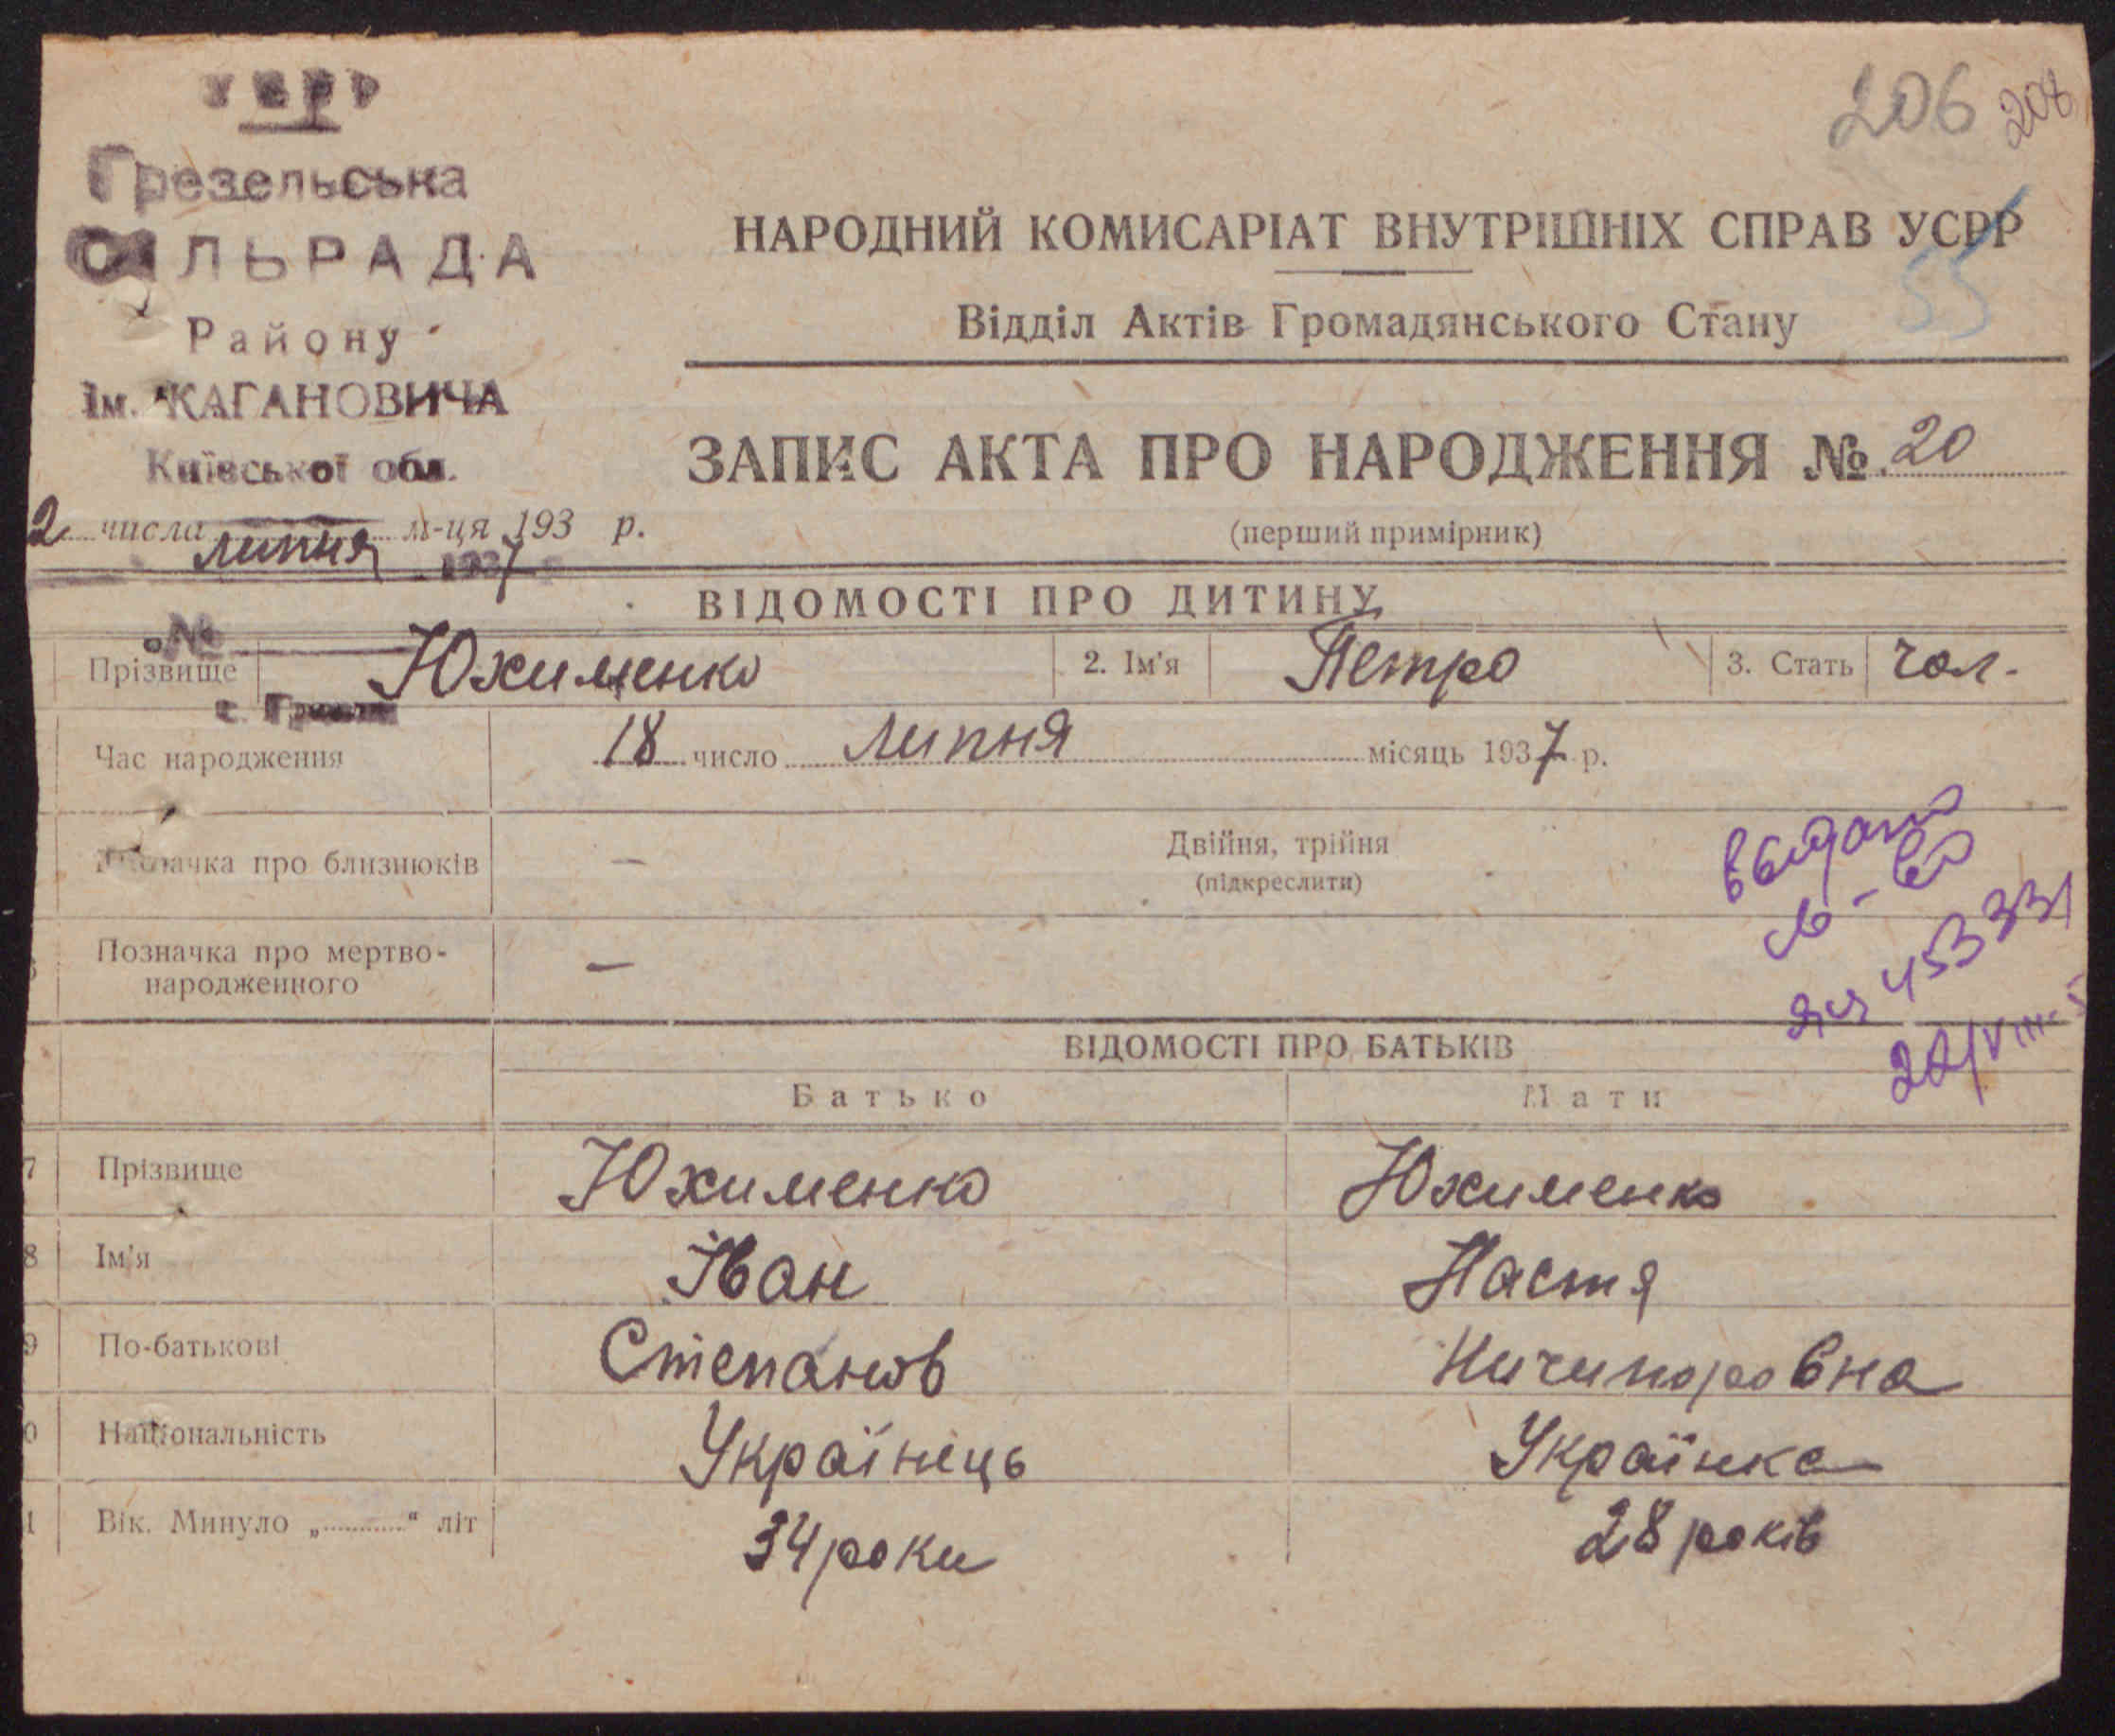 УСРР
Грезельська
СІЛЬРАДА
Району
Ім. КАГАНОВИЧА
Київської обл.
206
208
НАРОДНИЙ КОМИСАРІАТ ВНУТРІШНІХ СПРАВ УСРР
55
Відділ Актів Громадянського Стану
ЗАПИС АКТА ПРО НАРОДЖЕННЯ № 20
(перший примірник)
2 числа липня м-ця 193 р.
1937
ВІДОМОСТІ ПРО ДИТИНУ
№
Прізвище Юхименко 2. Ім'я Петро 3. Стать чол.
с.
Час народження 18 число липня місяць 1937 р.
Позначка про близнюків — Двійня, трійня
(підкреслити)
Позначка про мертво-
народженного —
выдано
св-во
453331
22/VIII-
ВІДОМОСТІ ПРО БАТЬКІВ
Батько Мати
7 Прізвище Юхименко Юхименко
8 Ім'я Іван Настя
9 По-батькові Степанов Ничипоровна
0 Національність Українець Українка
1 Вік. Минуло „ “ літ 34 роки 28 років